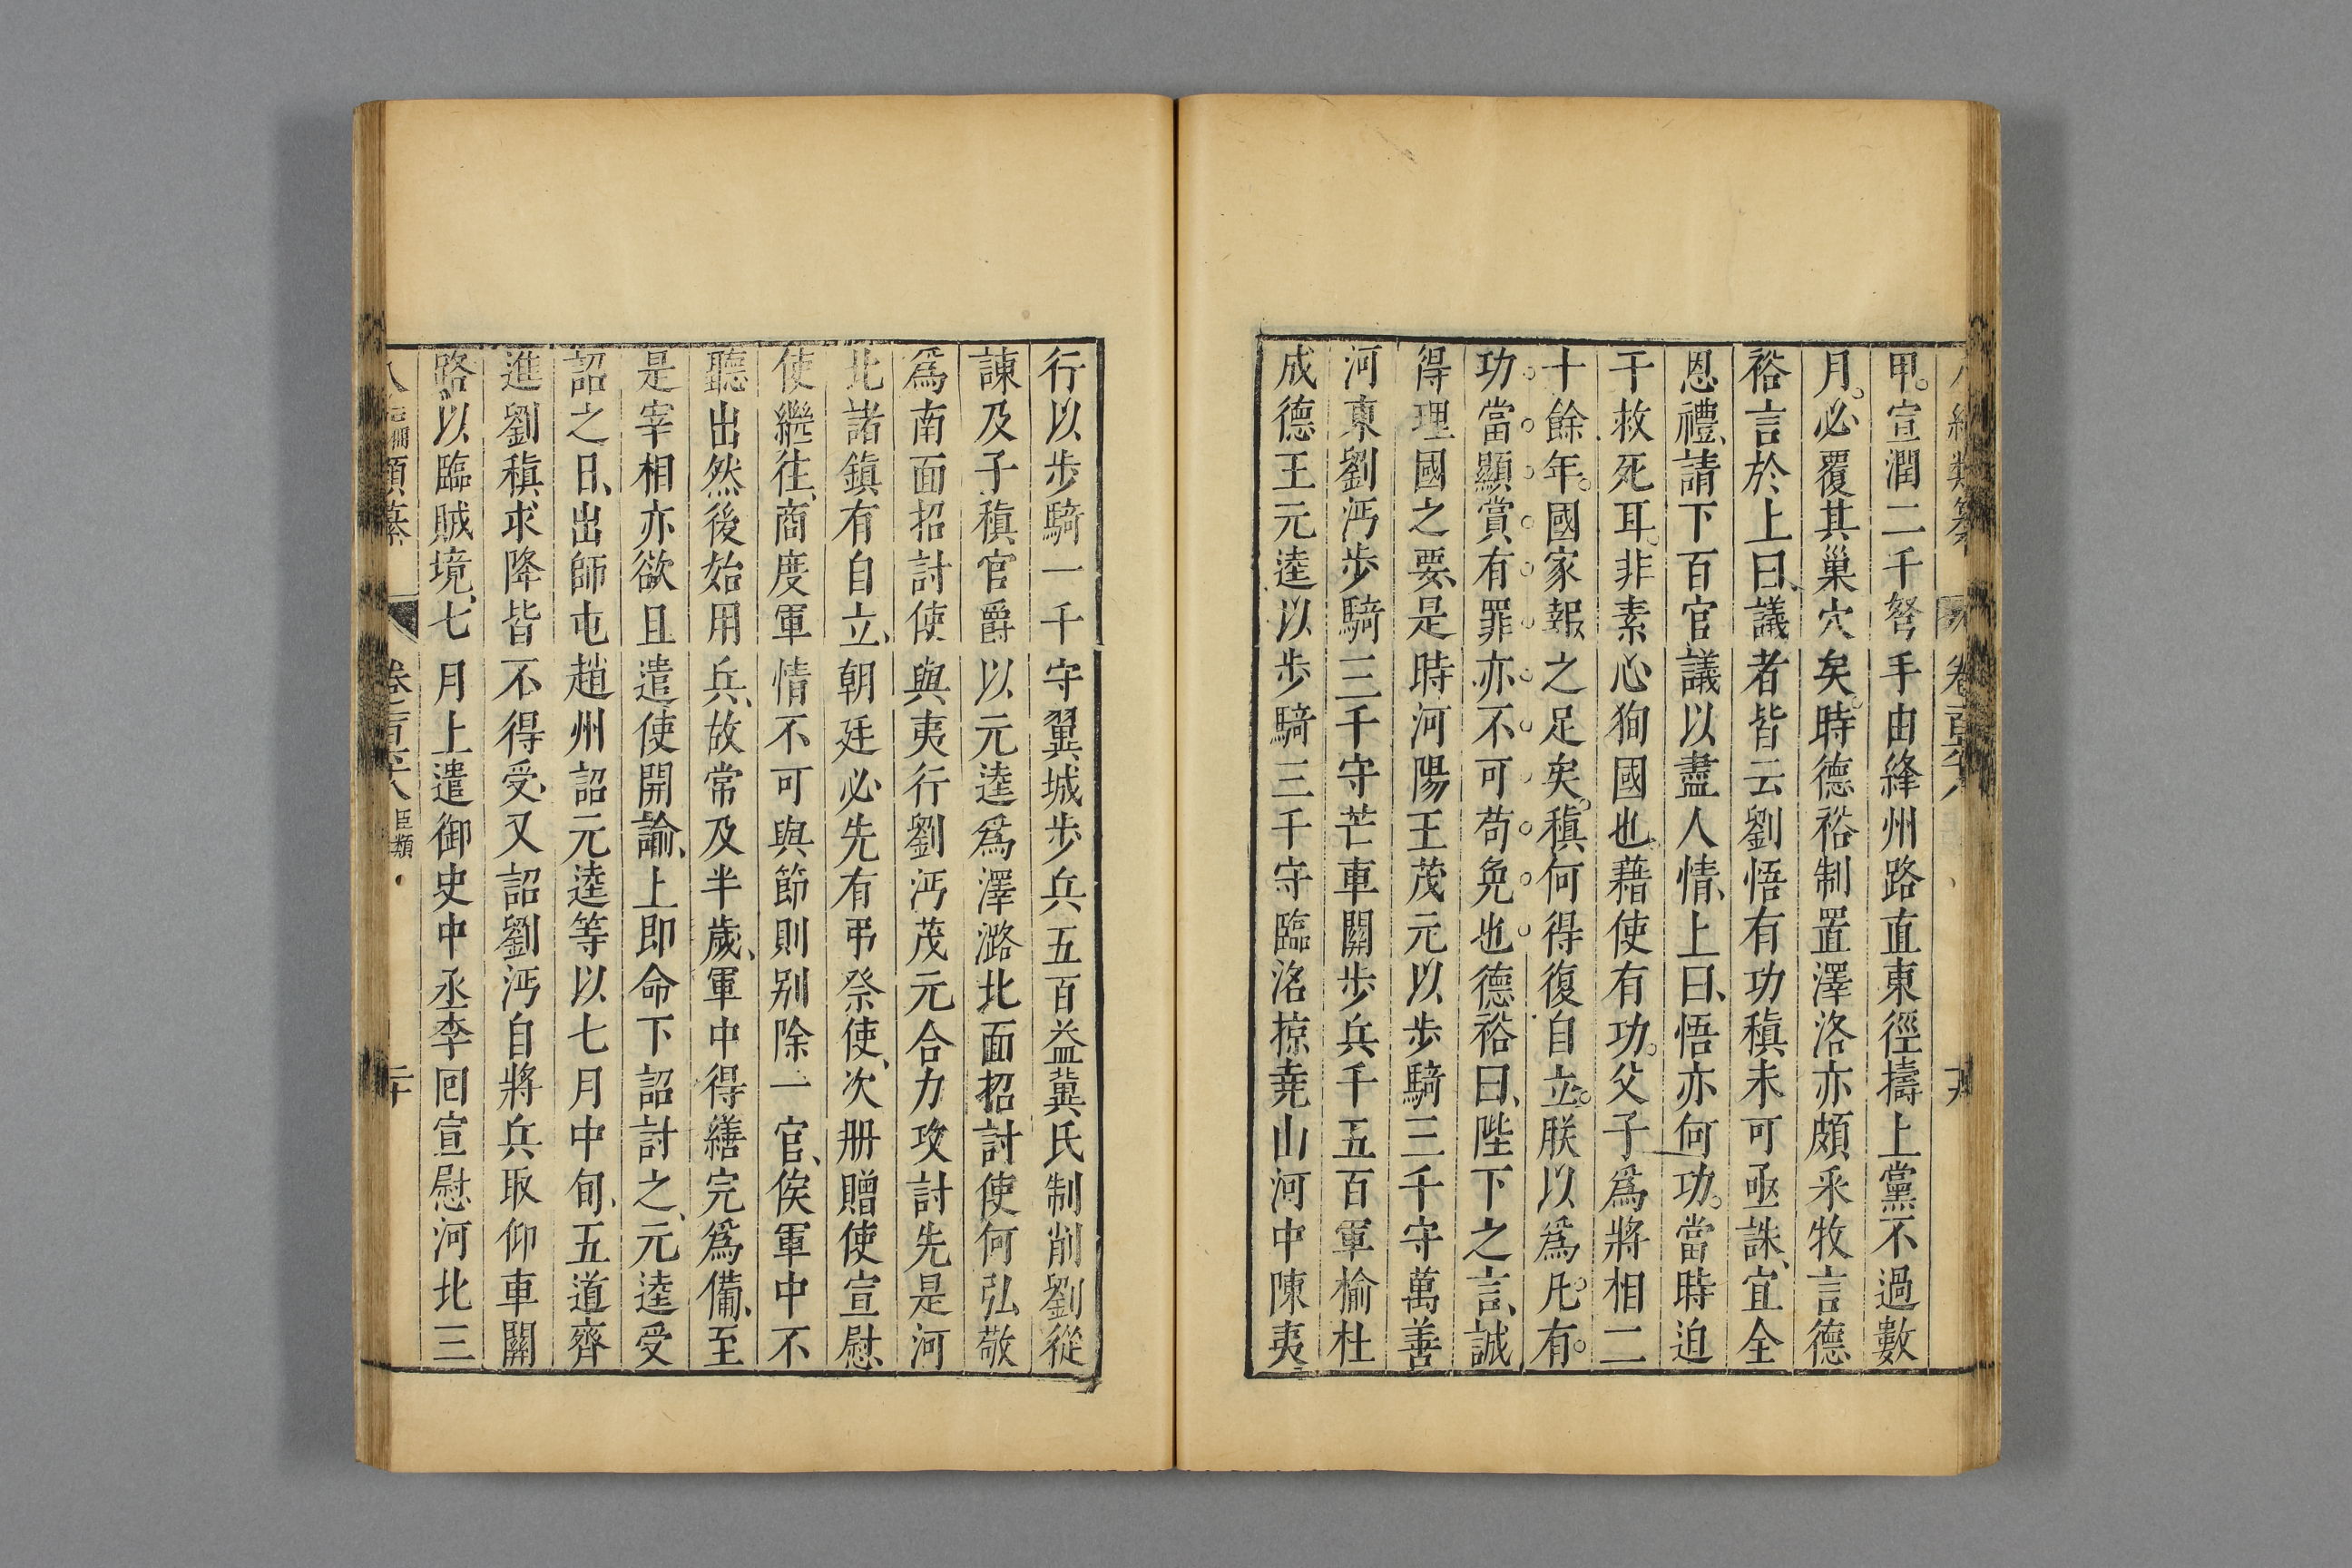 甲。宣潤二千弩手由絳州路直東徑擣上黨不過數
月。必覆其巢穴矣。時德裕制置澤潞亦頗采牧言德
裕言於上曰、議者皆云劉悟有功稹未可亟誅、宜全
恩禮、請下百官議以盡人情、上曰、悟亦何功。當時迫
于救死耳。非素心狥國也、藉使有功。父子爲將相二
十餘年。國家報之足矣。稹何得復自立。朕以爲凡。有。
功當顯賞、有罪亦不可苟免也德裕曰、陛下之言、誠
得理國之要、是時河陽王茂元以步騎三千守萬善
河東劉沔步騎三千守芒車關步兵千五百軍榆杜
成德王元逵以步騎三千守臨洺掠堯山河中陳夷
行以步騎一千守翼城步兵五百益冀氏制削劉從
諫及子稹官爵以元逵爲澤潞北面招討使何弘敬
爲南面招討使與夷行劉沔茂元合力攻討先是河
北諸鎮有自立、朝廷必先有弔祭使、次册贈使宣慰、
使繼往、商度軍情不可與節則别除一官、俟軍中不
聽出然後始用兵、故常及半歲、軍中得繕完爲備、至
是宰相亦欲且遣使開諭、上即命下詔討之、元逵受
詔之日、出師屯趙州詔元逵等以七月中旬、五道齊
進劉稹求降皆不得受、又詔劉沔自將兵取仰車關
路、以臨賊境、七月上遣御史中丞李回宣慰河北三
類纂 臣類